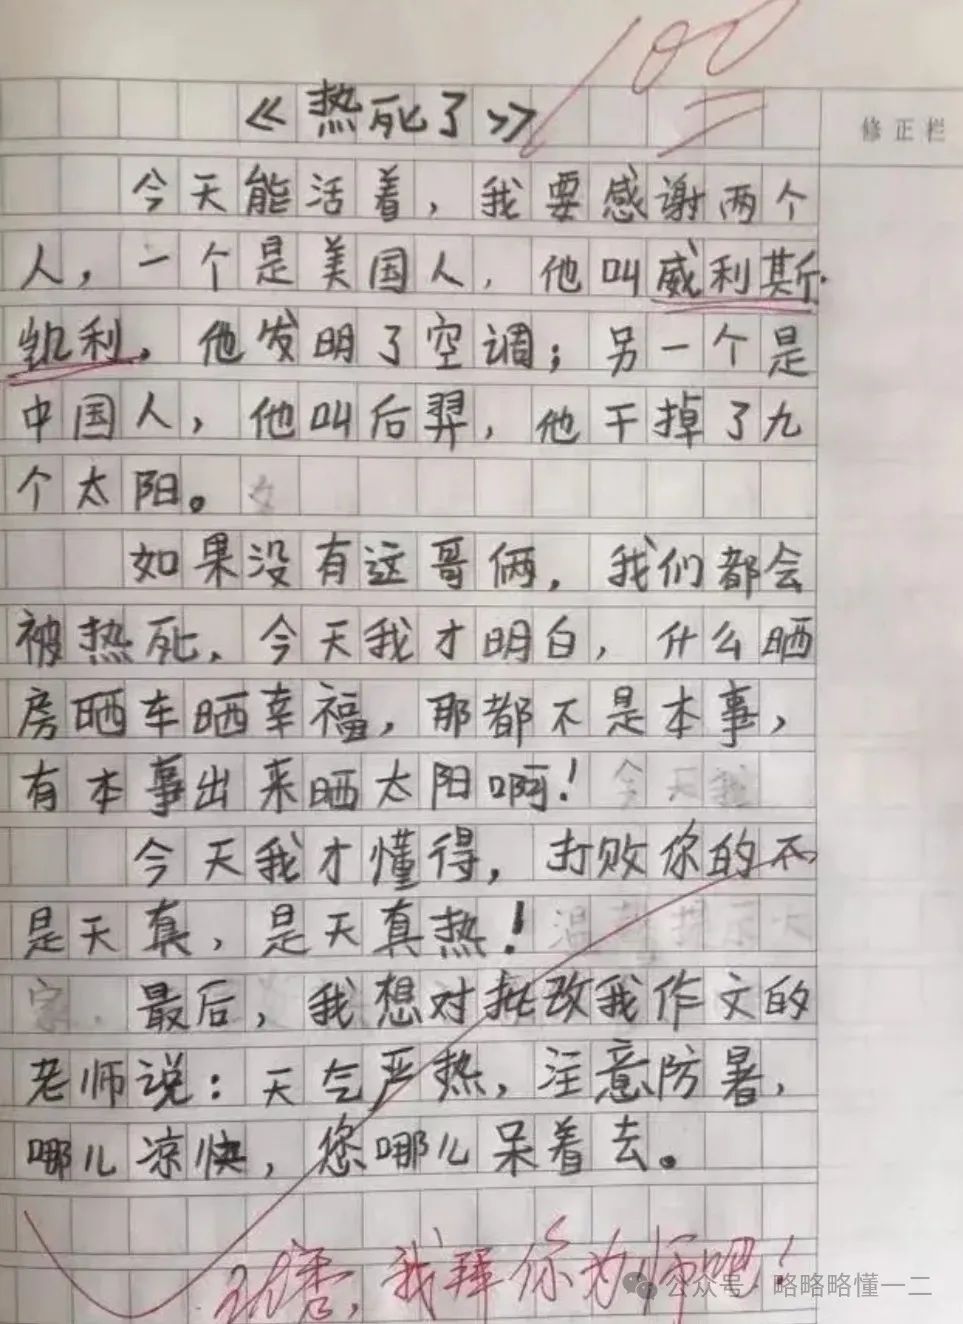 100
《热死了》
修正栏
今天能活着，我要感谢两个
人，一个是美国人，他叫威利斯·
凯利，他发明了空调；另一个是
中国人，他叫后羿，他干掉了九
个太阳。
如果没有这哥俩，我们都会
被热死，今天我才明白，什么晒
房晒车晒幸福，那都不是本事，
有本事出来晒太阳啊！今天我
今天我才懂得，打败你的不
是天真，是天真热！温馨提示大
家、最后，我想对批改我作文的
老师说：天气严热，注意防暑，
哪儿凉快，您哪儿呆着去。
优秀，我拜你为师吧！
公众号·略略略懂一二